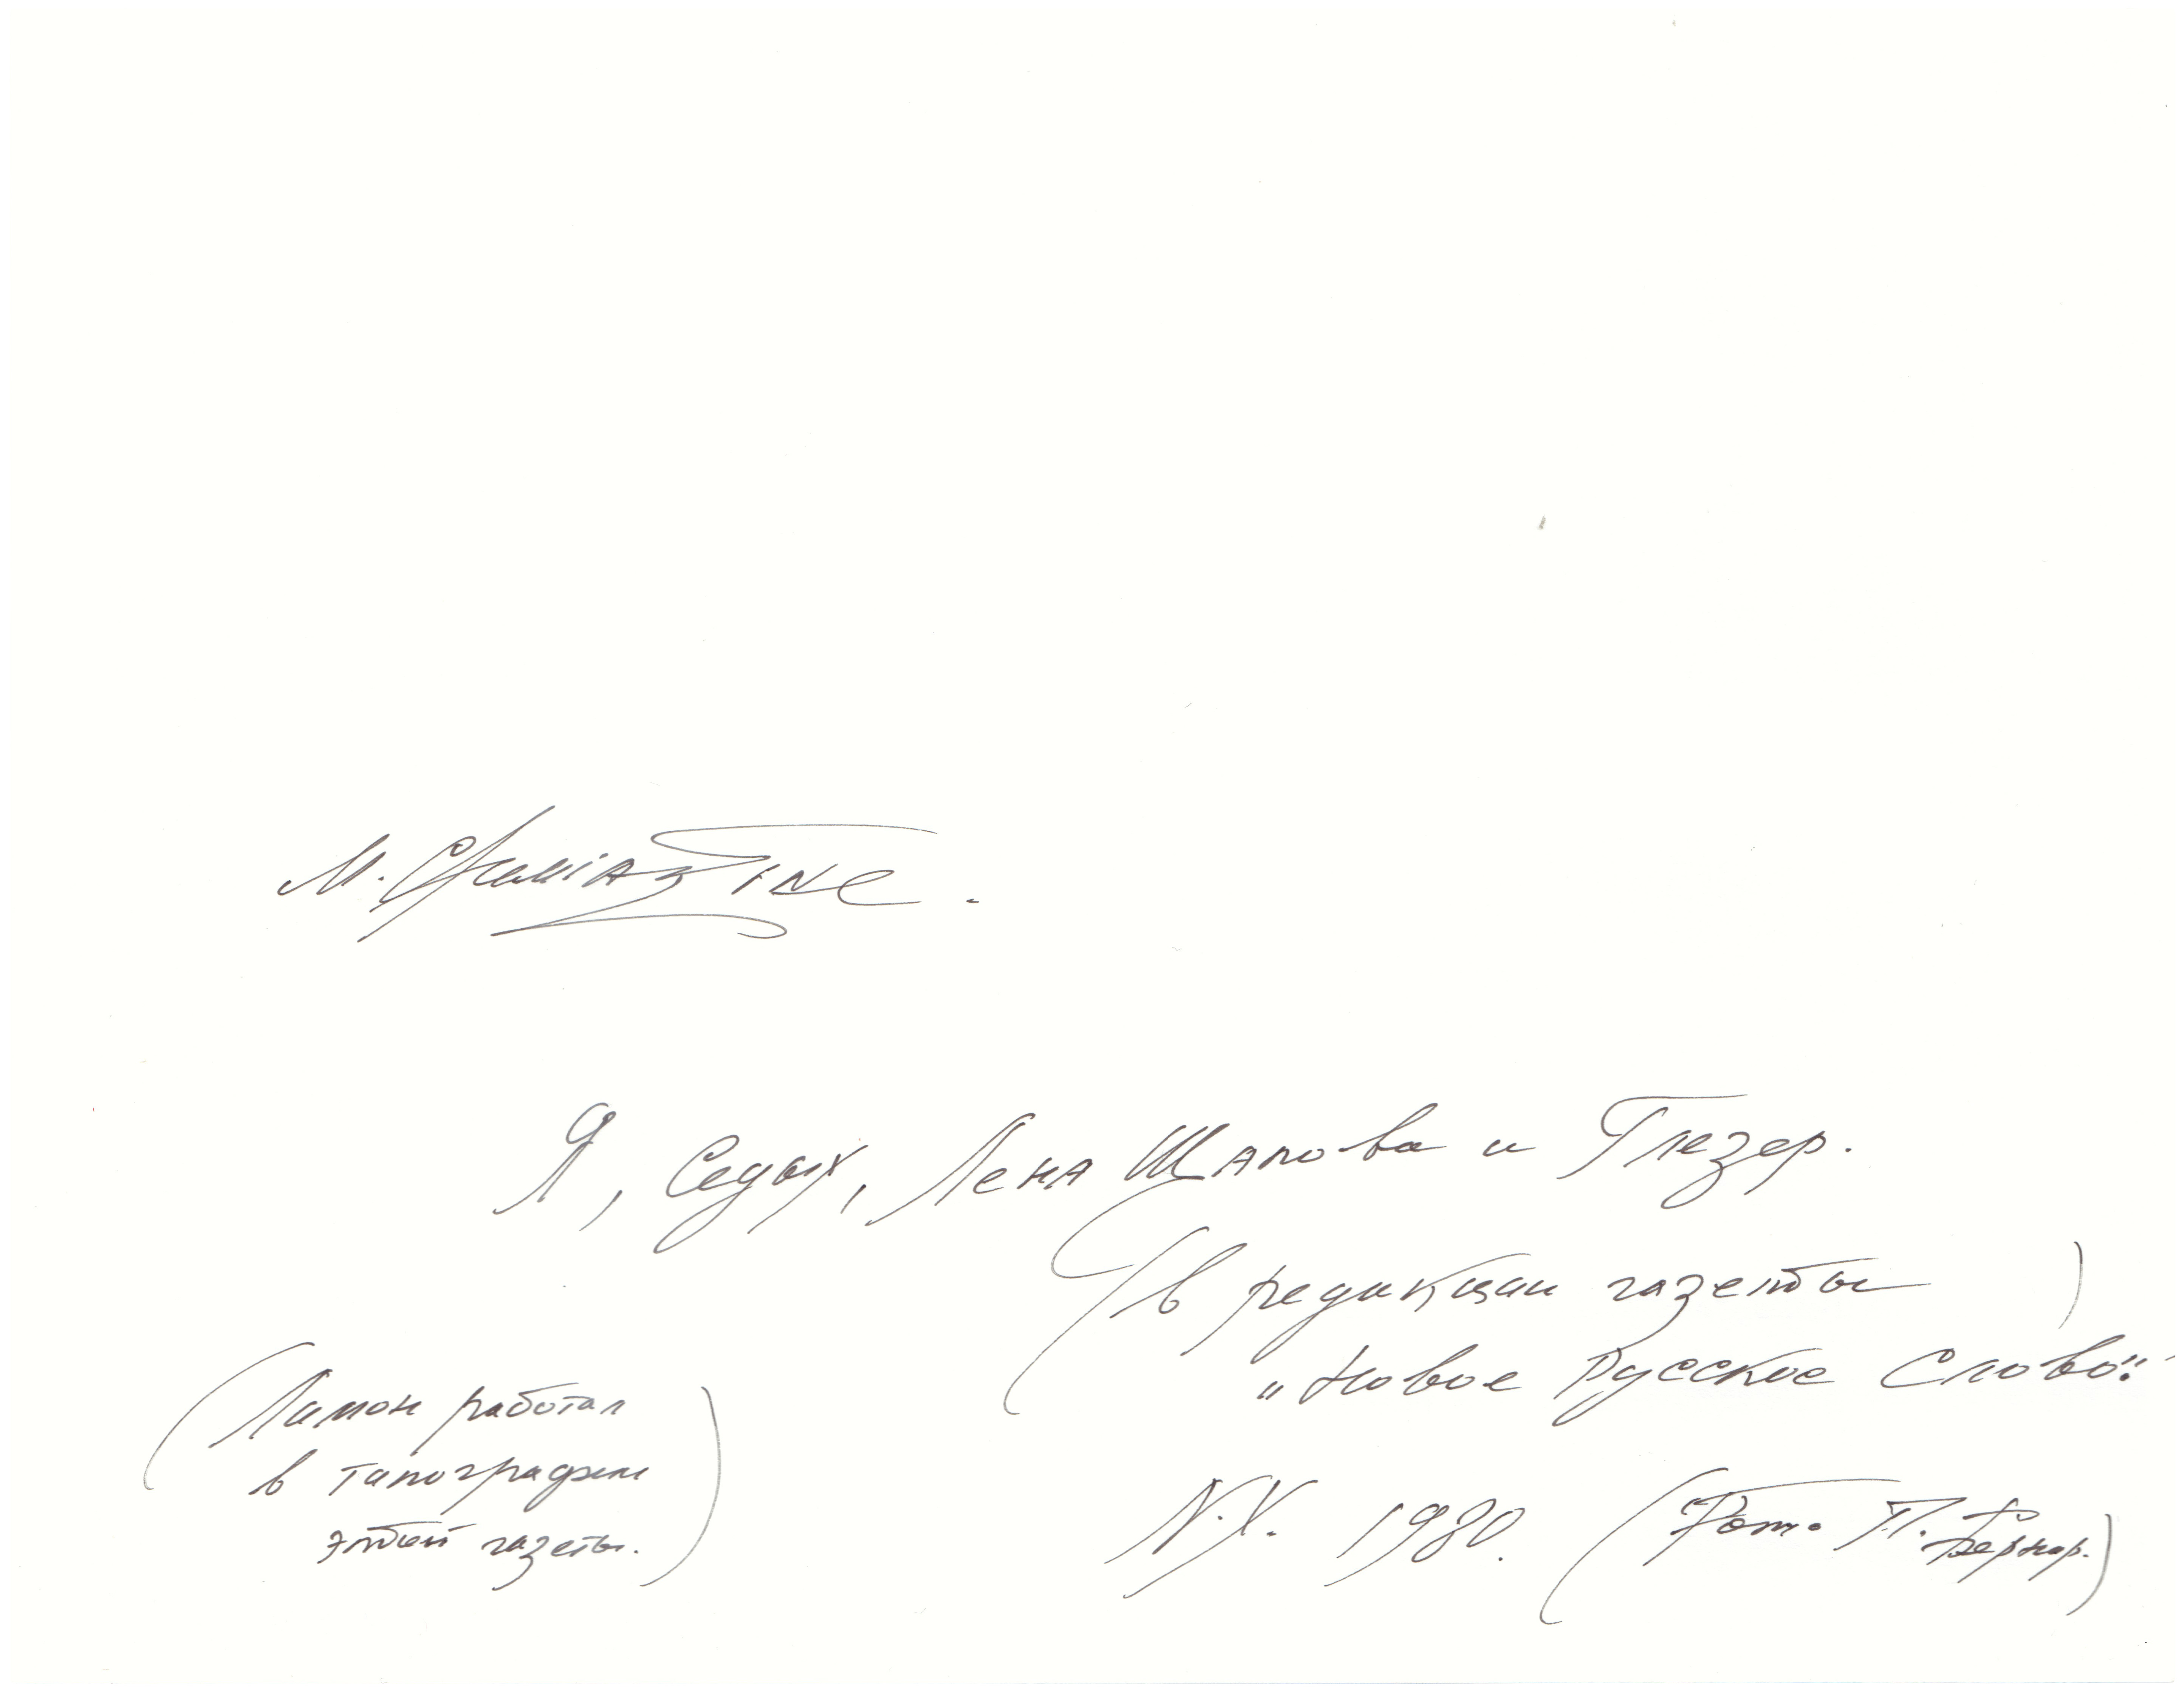 M. Chemiakine.
Я, Седых, Лена Щапова и Глезер.
(в редакции газеты
"Новое Русское Слово".)
(Лимон работал
в типографии
этой газеты.)
N.Y. 1980. (Фото П. Бернар.)